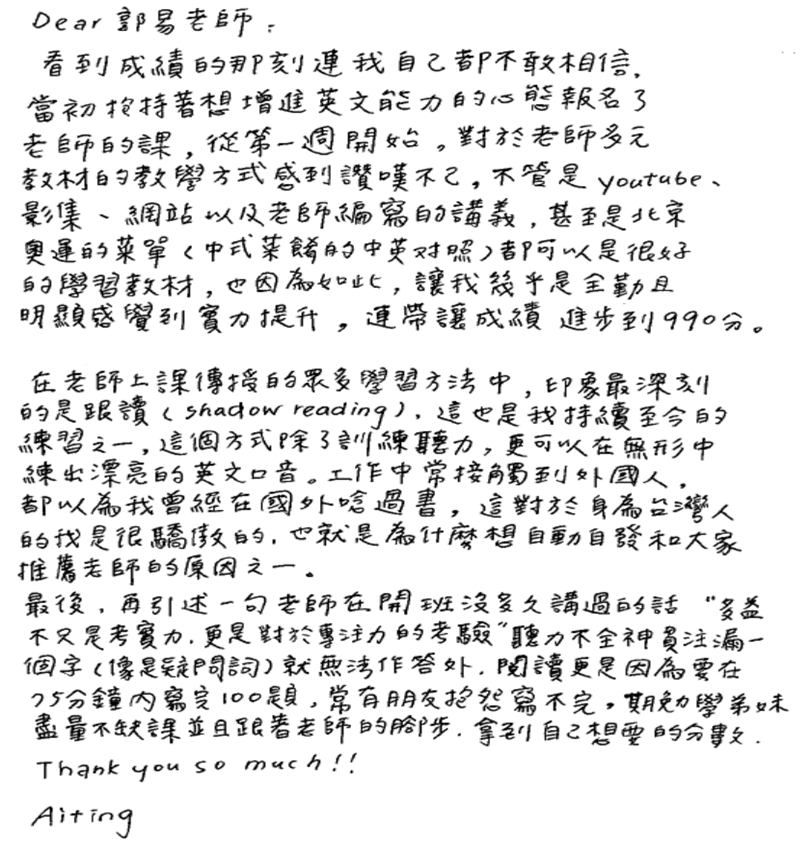 Dear 郭易老師：
看到成績的那刻連我自己都不敢相信，
當初抱持著想增進英文能力的心態報名了
老師的課，從第一週開始。對於老師多元
教材的教學方式感到讚嘆不已，不管是 youtube、
影集、網站以及老師編寫的講義，甚至是北京
奧運的菜單（中式菜餚的中英对照）都可以是很好
的學習教材，也因為如此，讓我幾乎是全勤且
明顯感覺到實力提升，連帶讓成績 進步到990分。
在老師上課傳授的眾多學習方法中，印象最深刻
的是跟讀（shadow reading），這也是我持續至今的
練習之一，這個方式除了訓練聽力，更可以在無形中
練出漂亮的英文口音。工作中常接觸到外國人，
都以為我曾經在國外唸過書，這對於身為台灣人
的我是很驕傲的，也就是為什麼想自動自發和大家
推薦老師的原因之一。
最後，再引述一句老師在開班沒多久講過的話 "多益
不只是考實力，更是對於專注力的考驗"聽力不全神貫注漏一
個字（像是疑問詞）就無法作答外，閱讀更是因為要在
75分鐘內寫完100題，常有朋友抱怨寫不完，期勉學弟妹
盡量不缺課並且跟著老師的腳步，拿到自己想要的分數．
Thank you so much!!
Aiting